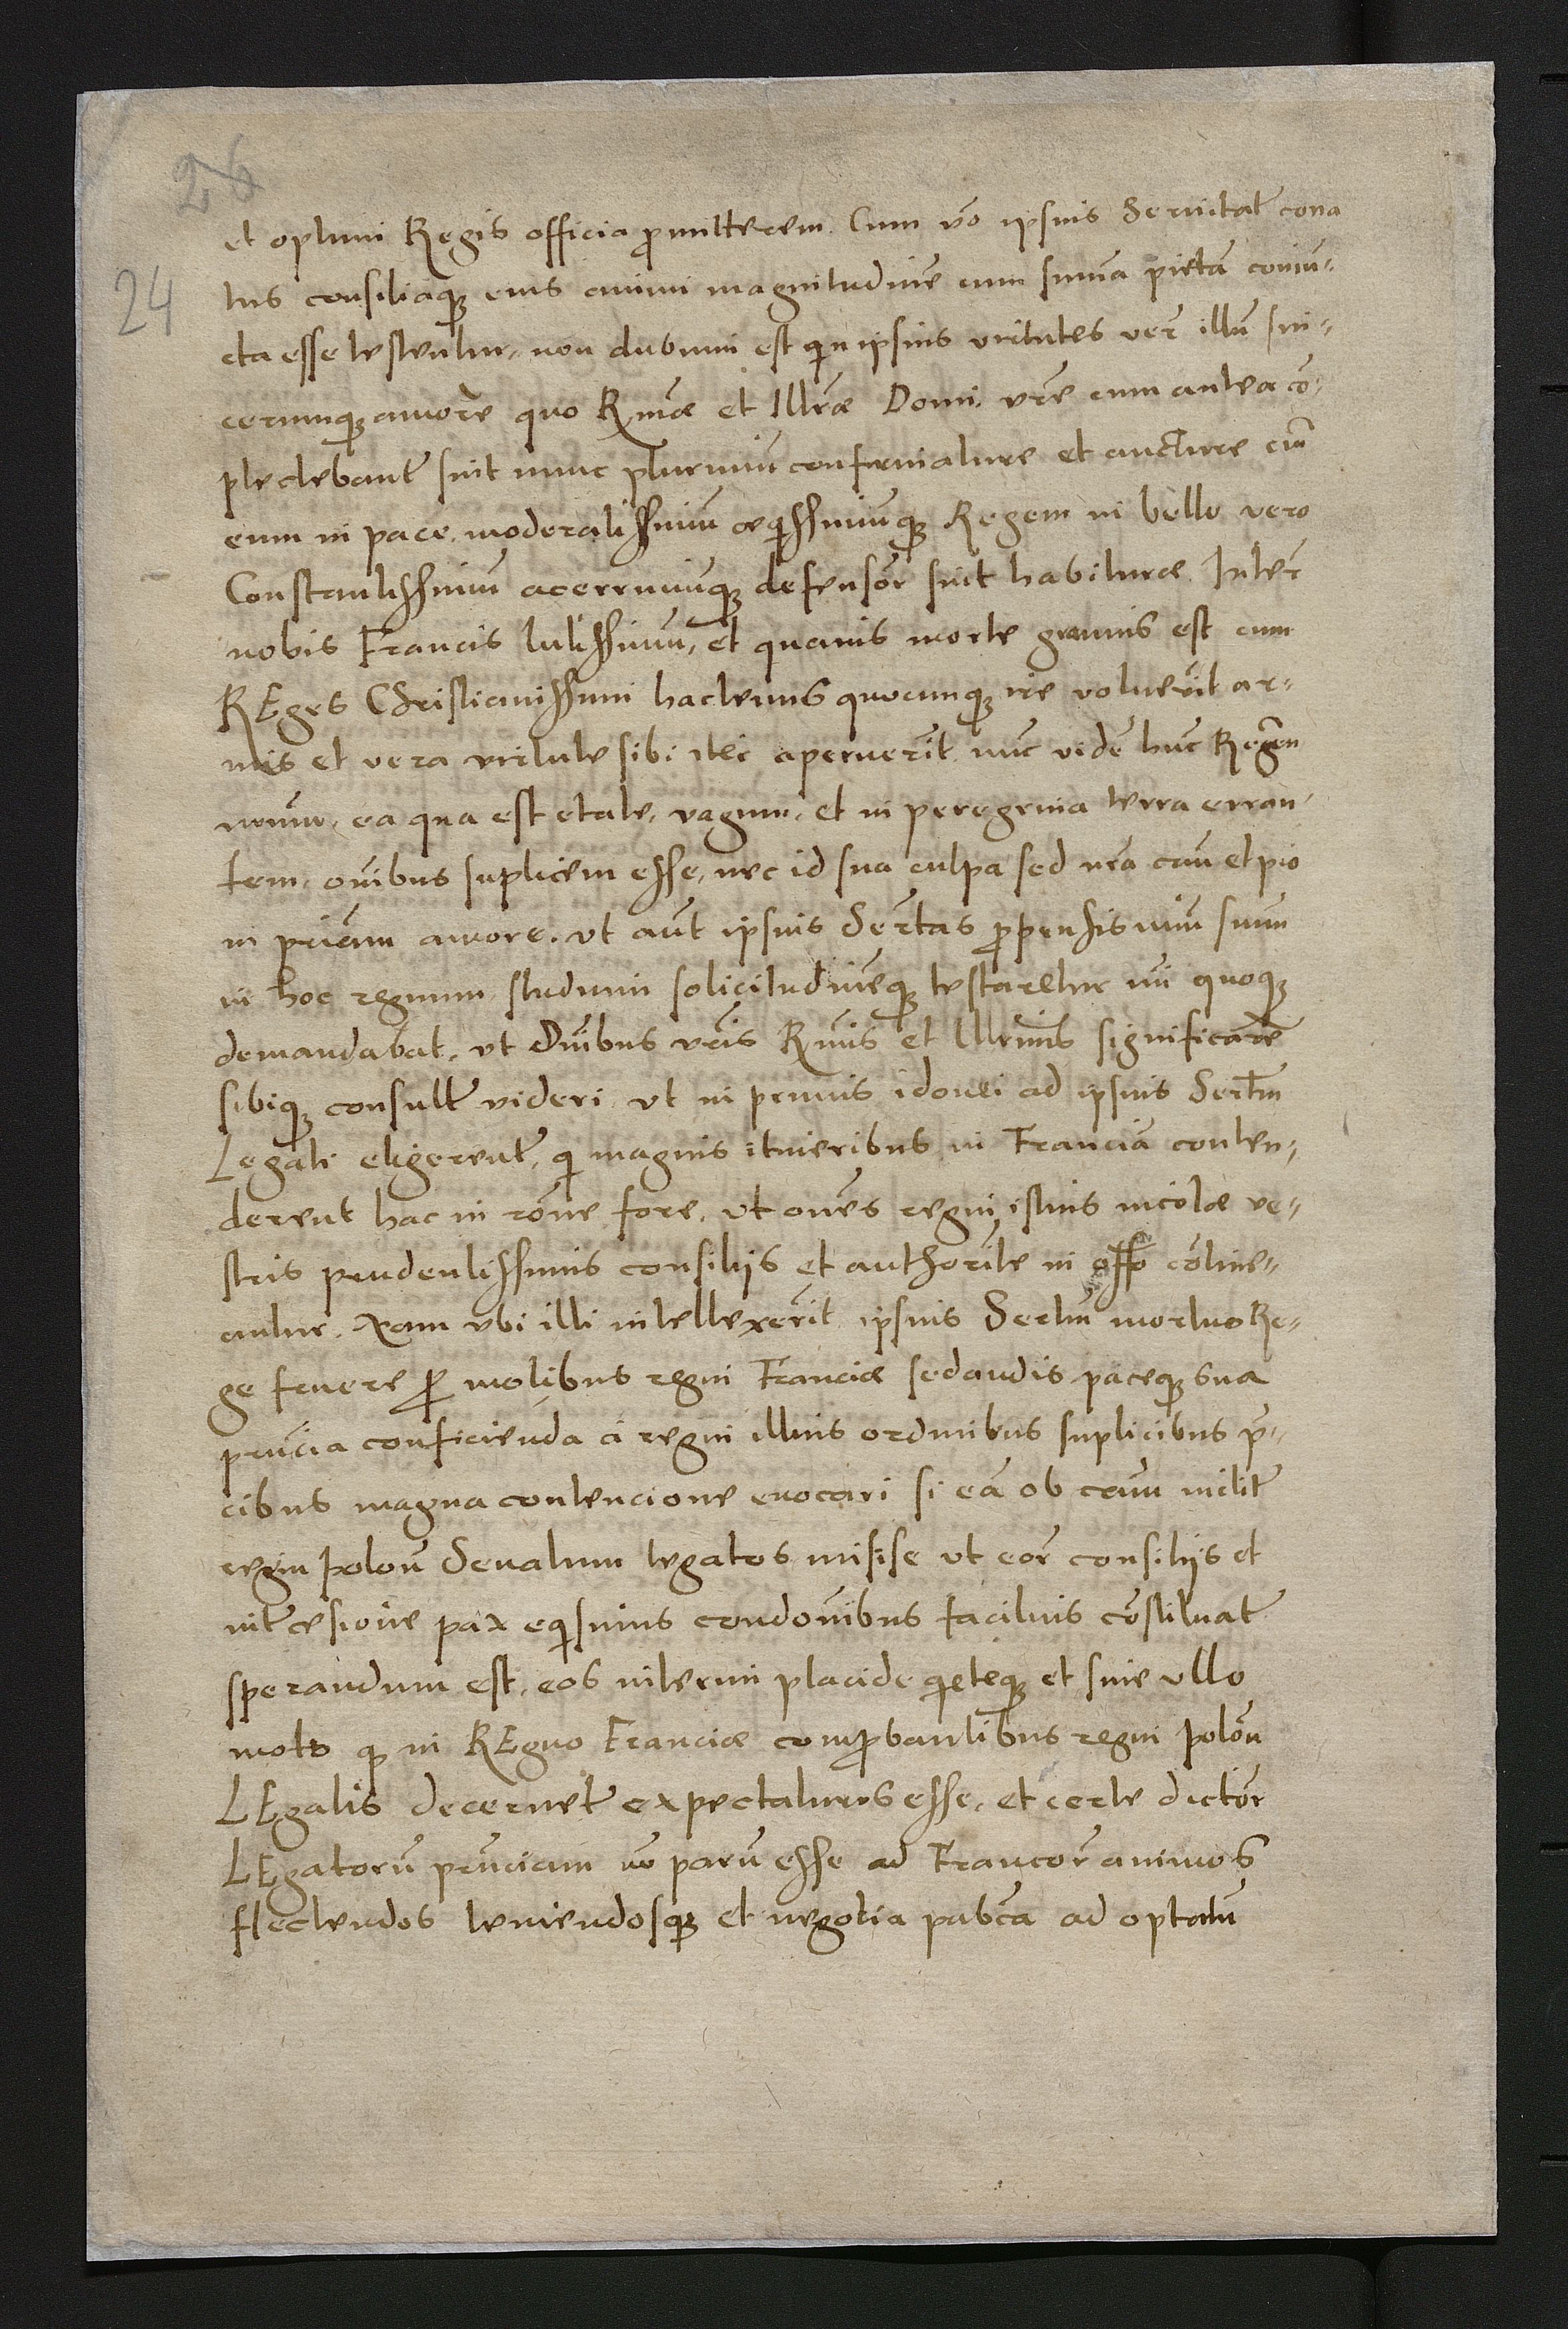 26
24
et optimi Regis officia promitterem. Cum vo ipsius Serenitat cona
tus consiliaque eius animi magnitudine cum suma pieta coniu-
cta esse testentur, non dubium est quin ipsius virtutes ver illu sin-
cerumque amore quo Rmæ et Illræ Domi. vre eum antea co-
plectebant sint nunc plurimu confirmature et aucture cu
eum in pace moderatissimu æquissimuque Regem in bello vero
Constantissimu acerrimuque defensor sint habituræ. Inter
nobis Francis luctissimu, et quauis morte grauius est cum
REges Christianissimi hactenus quocunque ire voluerit ar-
mis et vera virtute sibi iter aperuerit nuc vide huc Regem
nrum, ea qua est etate, vagum, et in peregrina terra erran-
tem, oibus suplicem esse, nec id sua culpa sed nra cau et pio
in priam amore. Vt aut ipsius Sertas propensissimu suum
in hoc regnum studium solicitudineque testaretur mi quoque
demandabat, vt Dnibus vris Rmis et Illrimis significare
sibique consult videri vt in primis idonei ad ipsius Sertm
Legati eligerent, qui magnis itineribus in Francia conten-
derent hac in rone fore, vt oues regni istius incolæ ve-
stris prudentissimis consilijs et authorite in offo cotine-
antur. Nam vbi illi intellexerit ipsius Sertm mortuo Re-
ge fruere pro motibus regni Franciæ sedandis paceque sua
prncia conficienda a regni illius ordinibus suplicibus pre-
cibus magna contencione euocari si ea ob cam inclit
regni Polon Senatum legatos misise vt eor consilijs et
intercesione pax equis cum condonibus facilius costituat
sperandum est, eos interim placide quieteque et sine vllo
moto quod in REgno Franciæ comprobantibus regni Polon
LEgatis decernet expectaturos esse, et certe dictor
LEgatoru prnciam no paru esse ad Francor animos
flectendos leniendosque et negotia pabca ad optatu